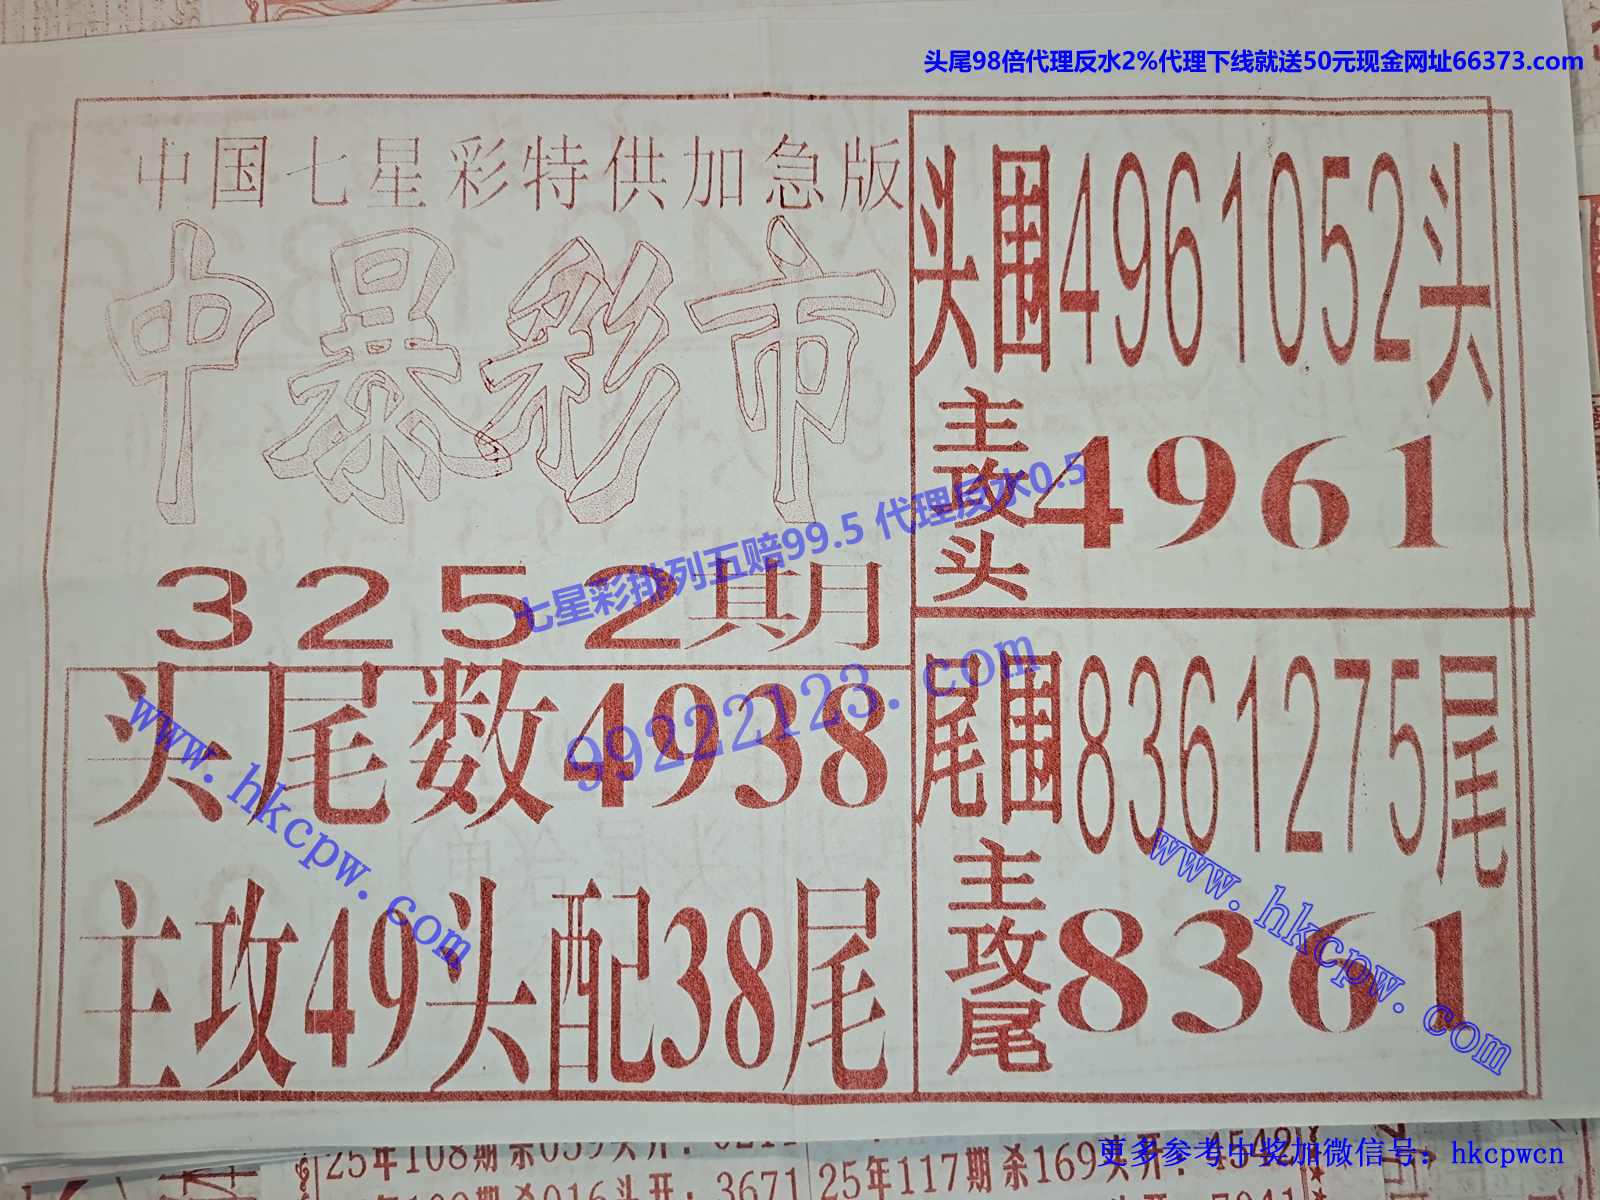 头尾98倍代理反水2%代理下线就送50元现金网址66373.com
中国七星彩特供加急版
中暴彩市
3252期
头尾数4938
主攻49头配38尾
头围4961052头
主攻头4961
尾围8361275尾
主攻尾8361
七星彩排列五赔99.5 代理反水0.5
99222123.com
www.hkcpw.com
www.hkcpw.com
25年108期杀039头开：0211
25年117期杀169头开：4542
期杀016头开：3671
更多参考中奖加微信号：hkcpwcn